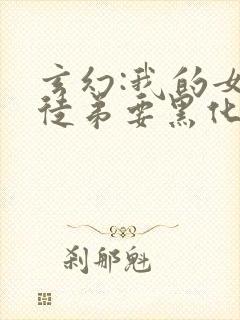 玄幻:我的女
徒弟要黑化
刹那魁